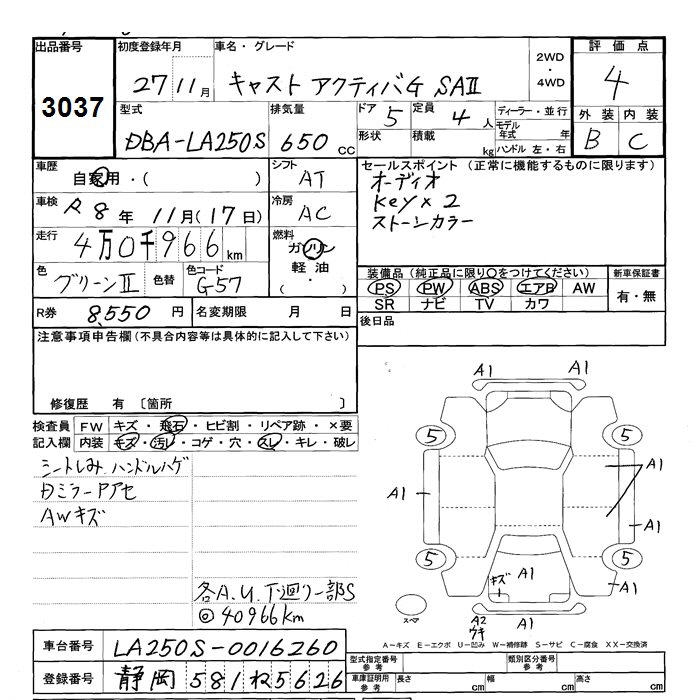 出品番号
3037
初度登録年月
27 11月
車名・グレード
キャスト アクティバG SAⅡ
2WD
・
4WD
評価点
4
型式
DBA-LA250S
排気量
650 CC
ドア 5
定員 4 人
形状
積載 kg
ディーラー・並行
モデル年式 年
ハンドル 左・右
外装 内装
B C
車歴
自家用・( )
シフト
AT
車検
R8年11月(17日)
冷房
AC
走行
4万0千966km
燃料
ガソリン
軽油
(・)
色
グリーンⅡ
色替
色コード
G57
R券 8,550 円
名変期限 月 日
セールスポイント (正常に機能するものに限ります)
オーディオ
Key×2
ストーンカラー
装備品 (純正品に限り○をつけてください)
PS PW ABS エアB AW
SR ナビ TV カワ
新車保証書
有・無
後日品
注意事項申告欄 (不具合内容等は具体的に記入して下さい)
修復歴 有 〔箇所 〕
検査員記入欄
FW キズ・飛石・ヒビ割・リペア跡・×要
内装 キズ・汚レ・コゲ・穴・スレ・キレ・破レ
シートしみ ハンドルハゲ
Dミラーアアセ
AWキズ
各A.U.下廻り一部S
◎40966km
A1
A1
5 5
A1
A1
A1
5 5
キズ A1
A1
スペア
A2
ウキ
A1
A-キズ E-エクボ U-凹み W-補修跡 S-サビ C-腐食 XX-交換済
車台番号 LA250S-0016260
登録番号 静岡 581 ね 5626
型式指定番号 参考
類別区分番号 参考
車庫証明用 参考
長さ cm
幅 cm
高さ cm